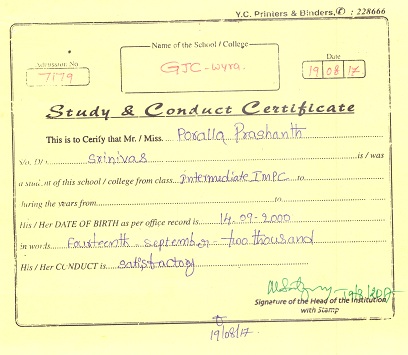 Y.C. Printers & Binders, ✆ : 228666
Name of the School / College
Admission No
7179
GJC-wyra.
Date
19 08 17
Study & Conduct Certificate
This is to Cerify that Mr. / Miss. Poralla Prashanth
S/o, D/o Srinivas is / was
a student of this school / college from class Intermediate IMPC to
during the years from to
His / Her DATE OF BIRTH as per office record is 14-09-2000
in words Fourteenth September two thousand
His / Her CUNDUCT is satisfactory
Signature of the Head of the Institution
with Stamp
19/08/17.